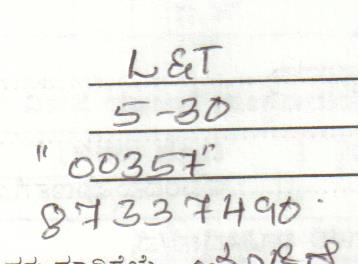 L&T
5-30
"00357"
87337490